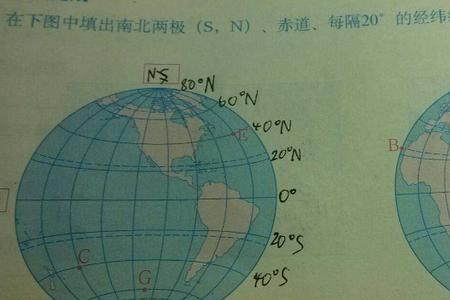 在下图中填出南北两极（S，N）、赤道、每隔20°的经纬
N
80°N
60°N
40°N
E
20°N
B
0°
20°S
C
40°S
G